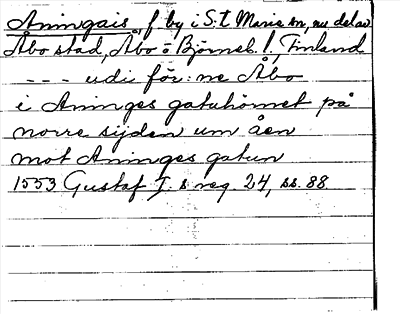 Aningais, f by i S:t Marie sn, nu del av
Åbo stad, Åbo o Björneb. l., Finland
--- udi för:ne Åbo
i Aninges gatuhörnet på
norre sijden um åen
mot Aninges gatun
1553 Gustaf I:s reg. 24, ss. 88